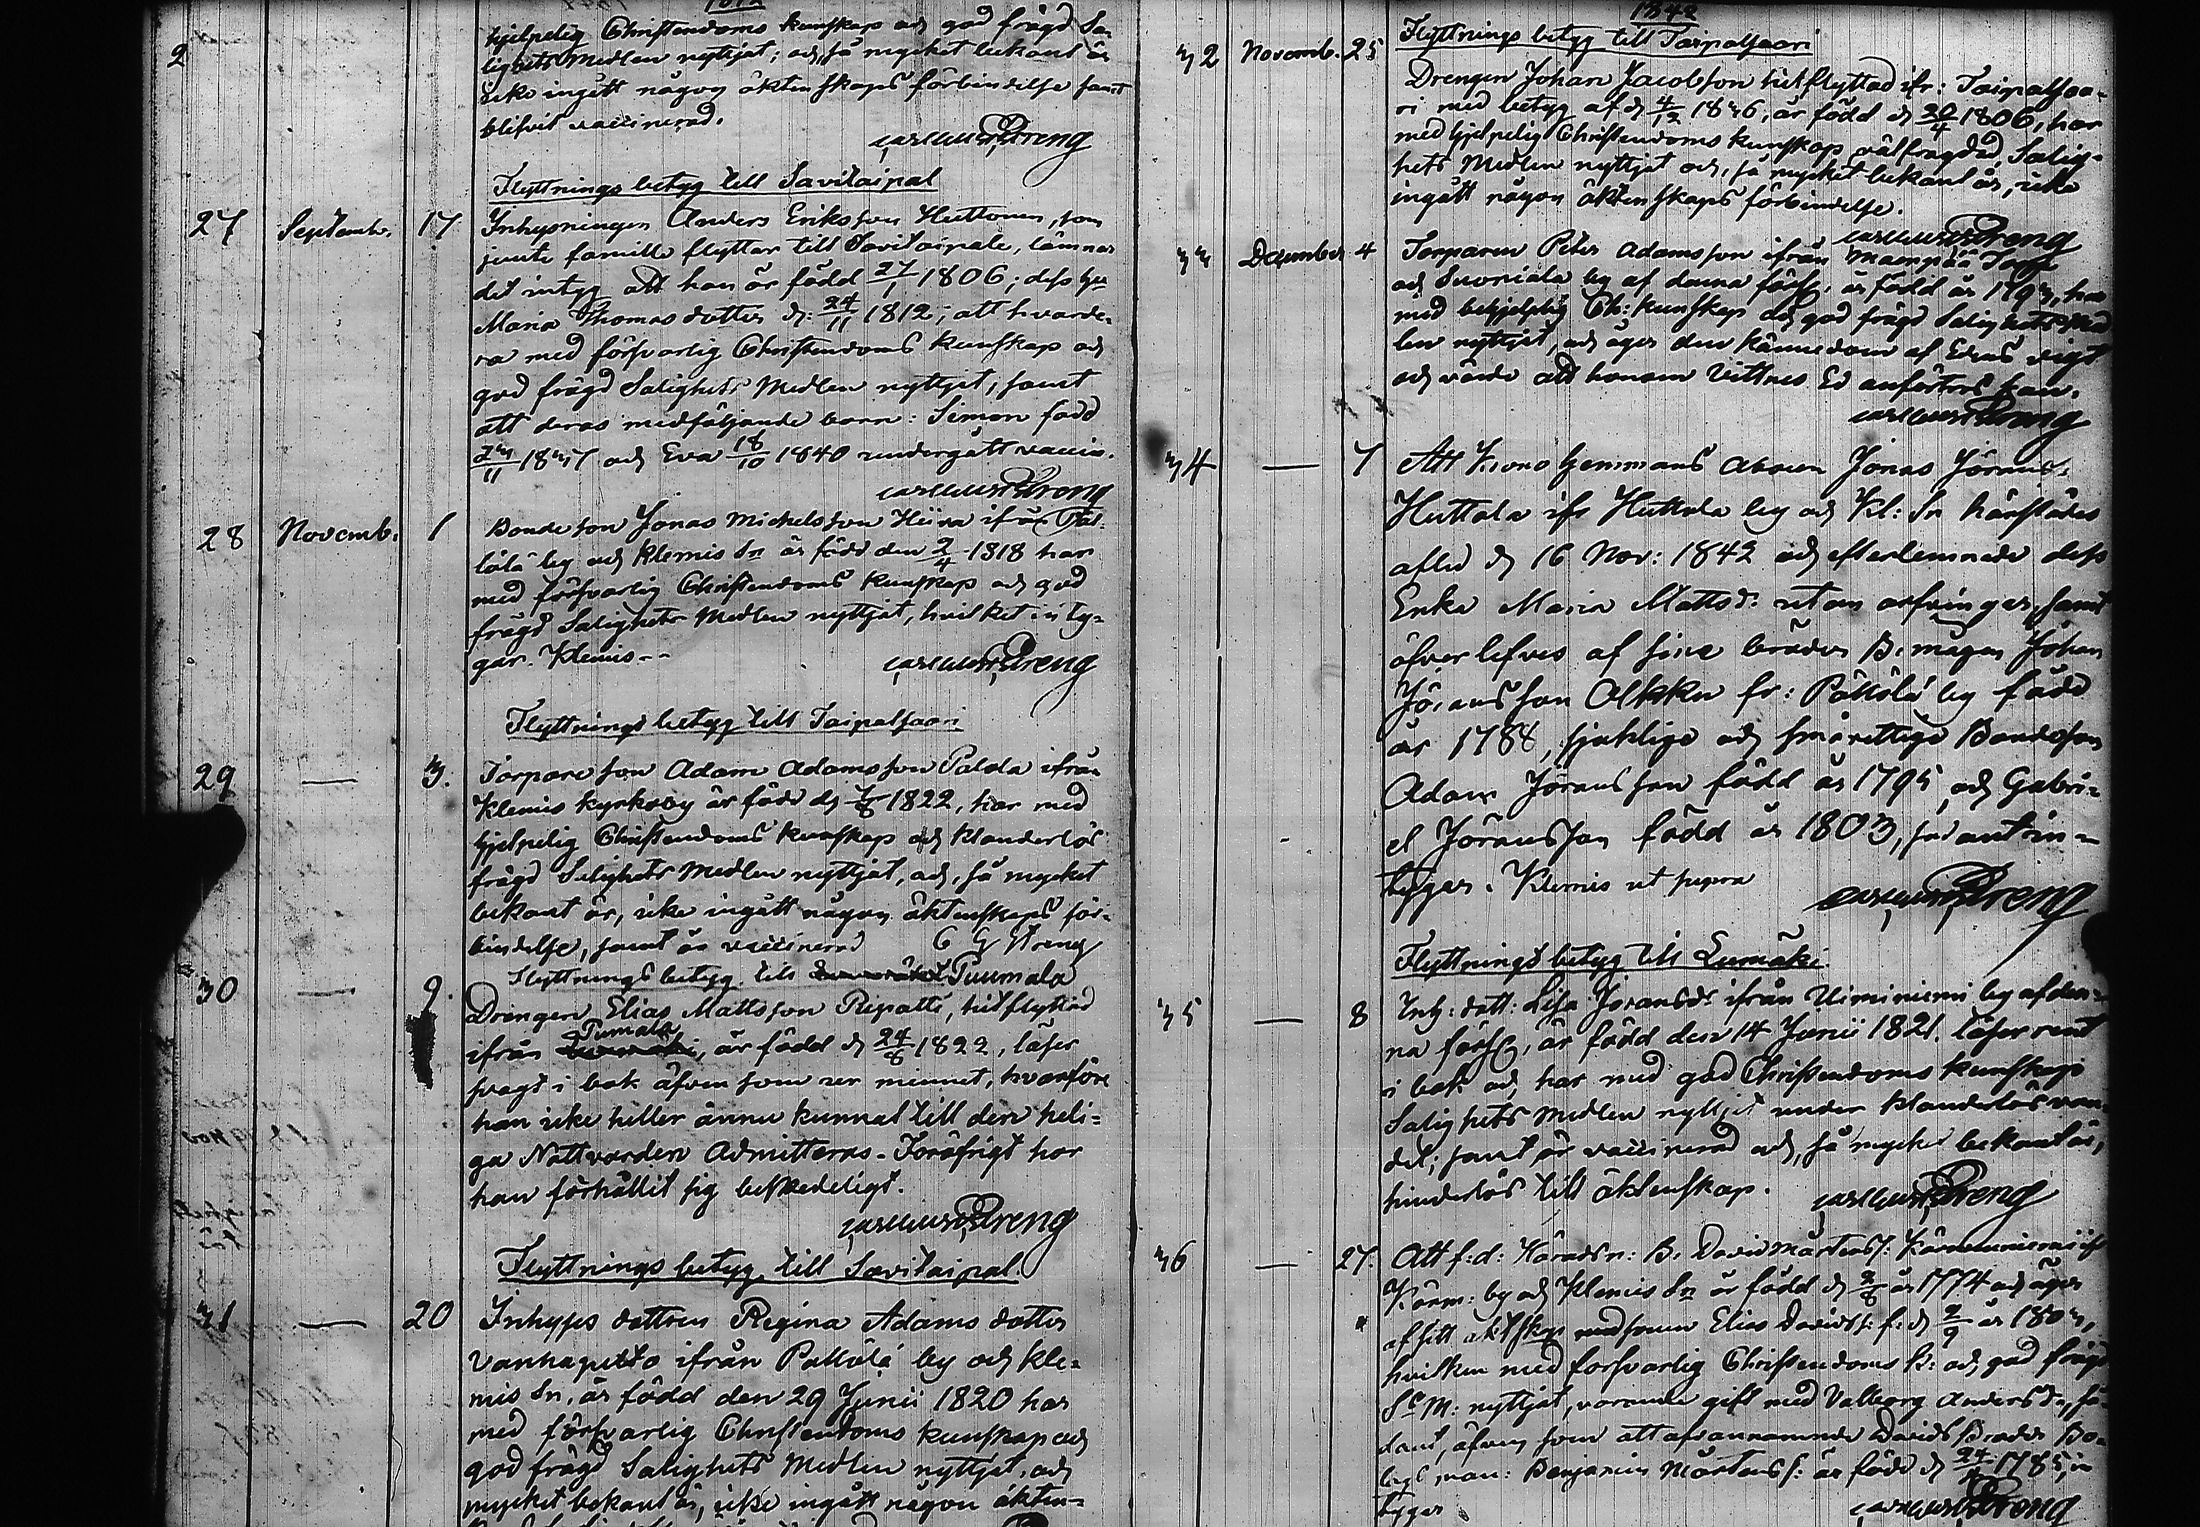 hjelpelig Christendoms kunskap och god frägd Sa-
lighets Medlen nyttjat; och, så mycket bekant är
icke ingått någon äktenskaps förbindelse samt
blifvit vaccinerad.
Flyttnings betyg till Savitaipal
27 Septemb. 17 Inhysningen Anders Eriksson Huttonen, som
jemte famille flyttar till Savitaipale, lämnas
det intyg att han är född 27/1 1806; dess hu
Maria Thomasdotter d: 24/11 1812; att hvarde-
ra med försvarlig Christendoms kunskap och
god frägd Salighets Medlen nyttjat, samt
att deras medföljande barn: Simon född
23/11 1837 och Eva 18/10 1840 undergått vaccin.
28 Novemb. 1 Bondeson Jonas Michelsson Hiiva ifrån Päl-
lölä by och Klemis Sn är född den 2/4 1818 har
med försvarlig Christendoms kunskap och god
frägd Salighets Medlen nyttjat, hvilket inty-
gar. Klemis --
Flyttnings betyg till Taipalsaari
29 — 3. Torpareson Adam Adamsson Palda ifrån
Klemis kyrkoby är född d 7/8 1822, har med
hjelpelig Christendoms kunskap och klanderlös
frägd Salighets Medlen nyttjat, och, så mycket
bekant är, icke ingått någon äktenskaps för-
bindelse, samt är vaccinerad C G Streng
Flyttnings betyg till Puumala
30 — 9. Drängen Elias Mattsson Ripatti, hitflyttad
ifrån Pumala, är född d 24/8 1822, läser
svagt i bok äfven som ur minnet, hvarföre
han icke heller ännu kunnat till den heli-
ga Nattvarden Admitteras. Föröfrigt har
han förhållit sig beskedeligt.
Flyttnings betyg till Savitaipal
31 — 20 Inhyses dottren Regina Adams dotter
Vanhaputto ifrån Pällölä by och Kle-
mis Sn, är född den 29 Junii 1820 har
med försvarlig Christendoms kunskap och
god frägd Salighets Medlen nyttjat, och
mycket bekant är, icke ingått någon äkten-
1842
Flyttnings betyg till Taipalsaari
32 Novemb. 25 Drengen Johan Jacobsson hitflyttad ifr: Taipalsaa-
ri med betyg af d 4/12 1836, är född d 20/4 1806, har
med hjelpelig Christendoms kunskap välfrägdad, Salig-
hets Medlen nyttjat och, så mycket bekant är, icke
ingått någon äktenskaps förbindelse.
33 December 4 Torparen Peter Adamsson ifrån
och by af denna förs:, är född år 1793, har
med behjelplig Ch: kunskap och god frägd Salighets Med
len nyttjat, och äger den kännedom af Edens vigt
och värde att honom Vittnes Ed anförtros kan.
34 — 7 Att Krono hemmans Aboen Jonas Jörans:
Huttala ifr Huttala by och Kl: Sn härstädes
afled d 16 Nov: 1842 och efterlemnade dess
Enka Maria Mattsd: utan arfvingar, samt
öfverlefves af sine bröder B. mågen Johan
Jöransson Olkku fr: Pällölä by född
år 1788, sjuklige och Bondeson
Adam Jöransson född år 1795, och Gabri-
el Jöransson född år 1803, sådant in-
tygar. Klemis ut supra
Flyttnings betyg till Luumäki
35 — 8 Inh: dott: Lisa Joransd: ifrån Uiminiemi by af den-
na förs:, är född den 14 Junii 1821. läser rent
i bok och har med god Christendoms kunskap
Salighets medlen nyttjat under klanderlös van-
del; samt är vaccinerad och, så mycket bekant är,
hinderlös till äktenskap.
36 — 27. Att f:d: Häradsn: B: David Mårtenss: ifr
Kärm: by och Klemis Sn är född d 2/8 år 1774 och äger
af sitt äktskap med sonen Elias Davidss: f: d 2/9 år 1803,
hvilken med försvarlig Christendoms k: och god frägd
S: M: nyttjat, varande gift med Valborg Andersd:, så-
dant, äfven som att ofvannämnde Davids Broder Bo-
Benjamin Mårtenss: är född d 24/ 1785, in
tygar